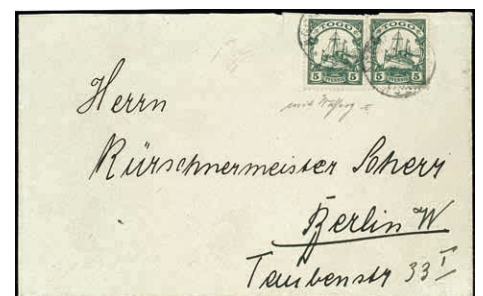 TOGO TOGO
5 PFENNIG 5 5 PFENNIG 5
Herrn
Kürschnermeister Scherr
Berlin W
Taubenstr 33 I